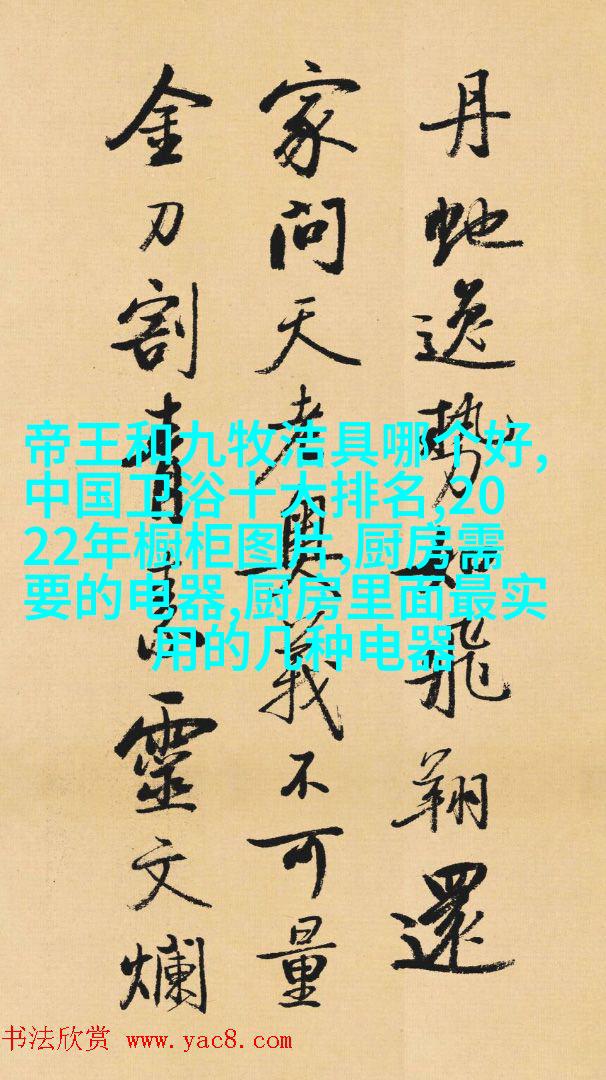 丹虵逸勢如飛翔還
家問天老奧義不可量
金刀割青素靈文爛
帝王和九牧洁具哪个好,
中国卫浴十大排名,20
22年橱柜图片,厨房需
要的电器,厨房里面最实
用的几种电器
书法欣赏 www.yac8.com